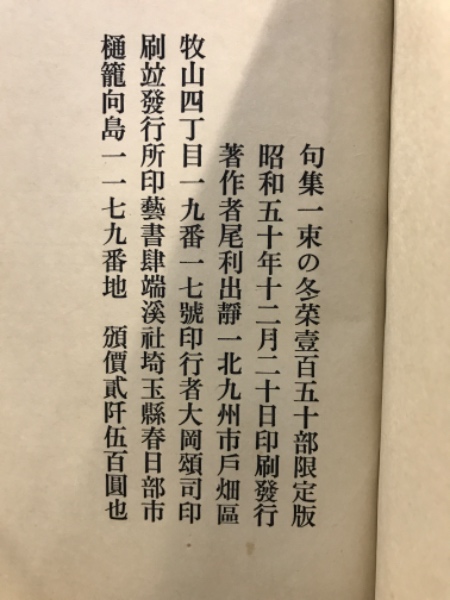 句集一束の冬菜壹百五十部限定版
昭和五十年十二月二十日印刷發行
著作者尾利出靜一北九州市戶畑區
牧山四丁目一九番一七號印行者大岡頌司印
刷竝發行所印藝書肆端溪社埼玉縣春日部市
樋籠向島一一七九番地　頒價貳阡伍百圓也